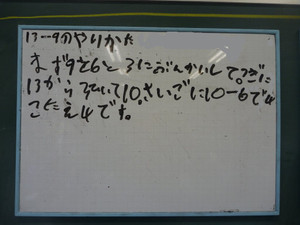 13-9のやりかた
まず9を6と3にぶんかいして。つぎに
13から3ひいて10。さいごに10-6で4
こたえ4です。